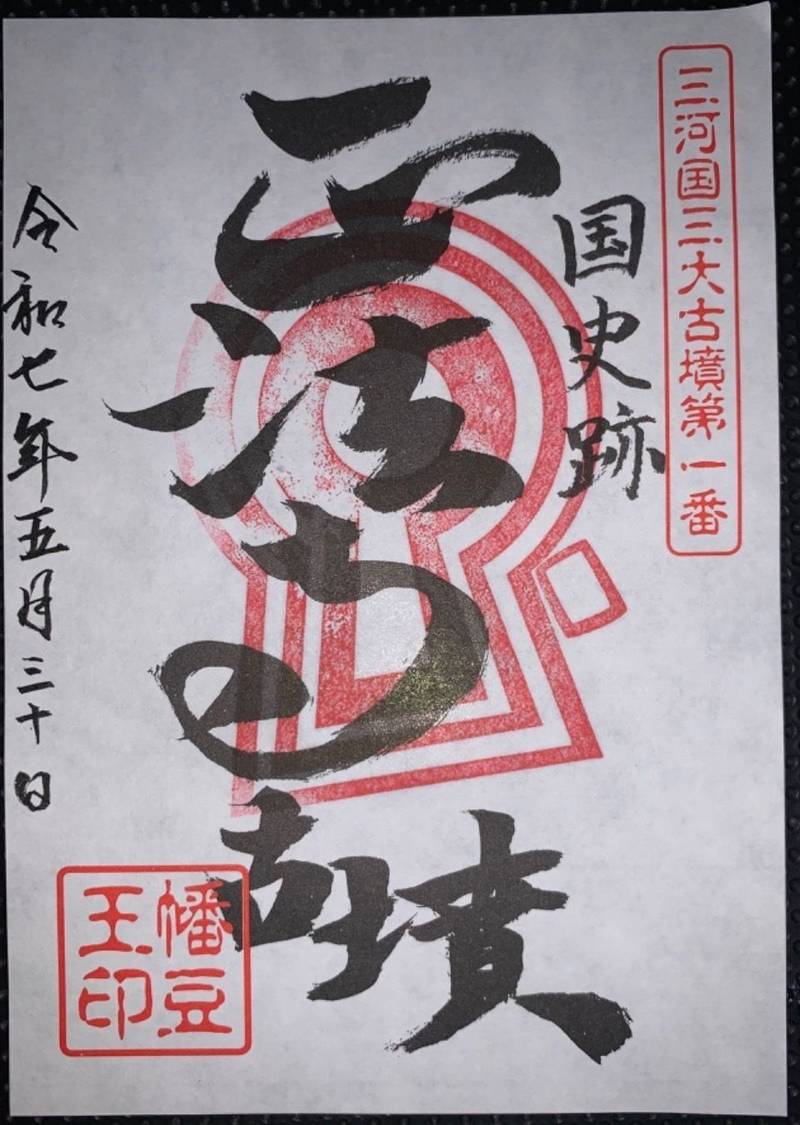 三河国三大古墳第一番
国史跡
正法寺古墳
令和七年五月三十日
幡豆
王印